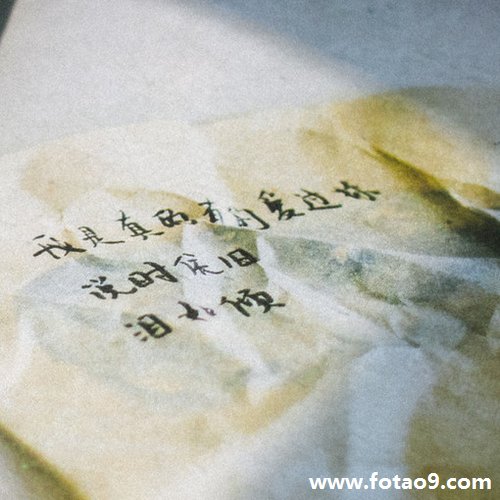 我是真的真的爱过你
说时依旧
泪如倾
www.fotao9.com